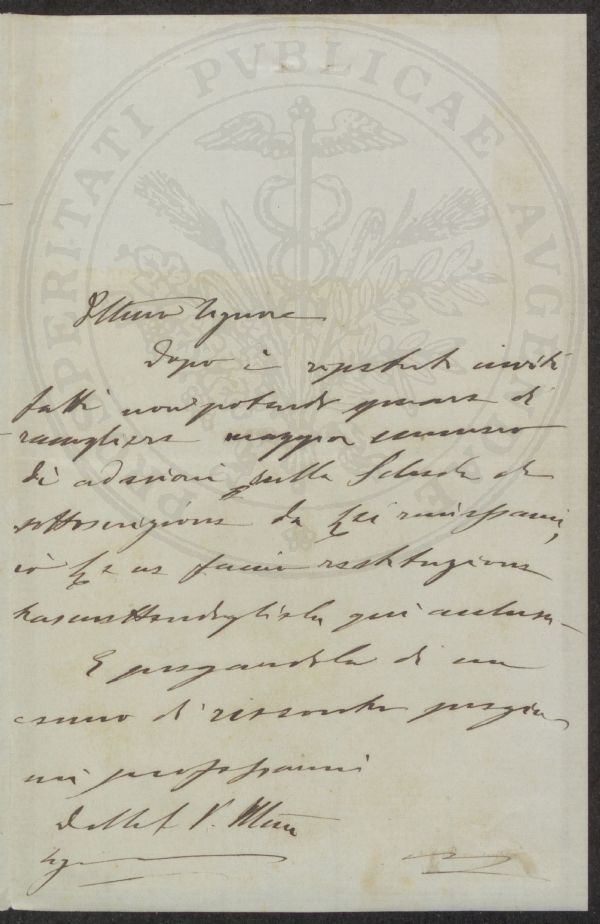 PROSPERITATI PUBLICAE AUGENDAE
Illmo Signore
Dopo i ripetuti inviti
fatti non potendo di
raccogliere maggior numero
di adesioni sulla Scheda di
sottoscrizione da Lei rimessami,
Le ne faccio restituzione
trasmettendogliela qui
E pregandola di un
cenno di riscontro pregio
mi professarmi
Della S. V. Illma